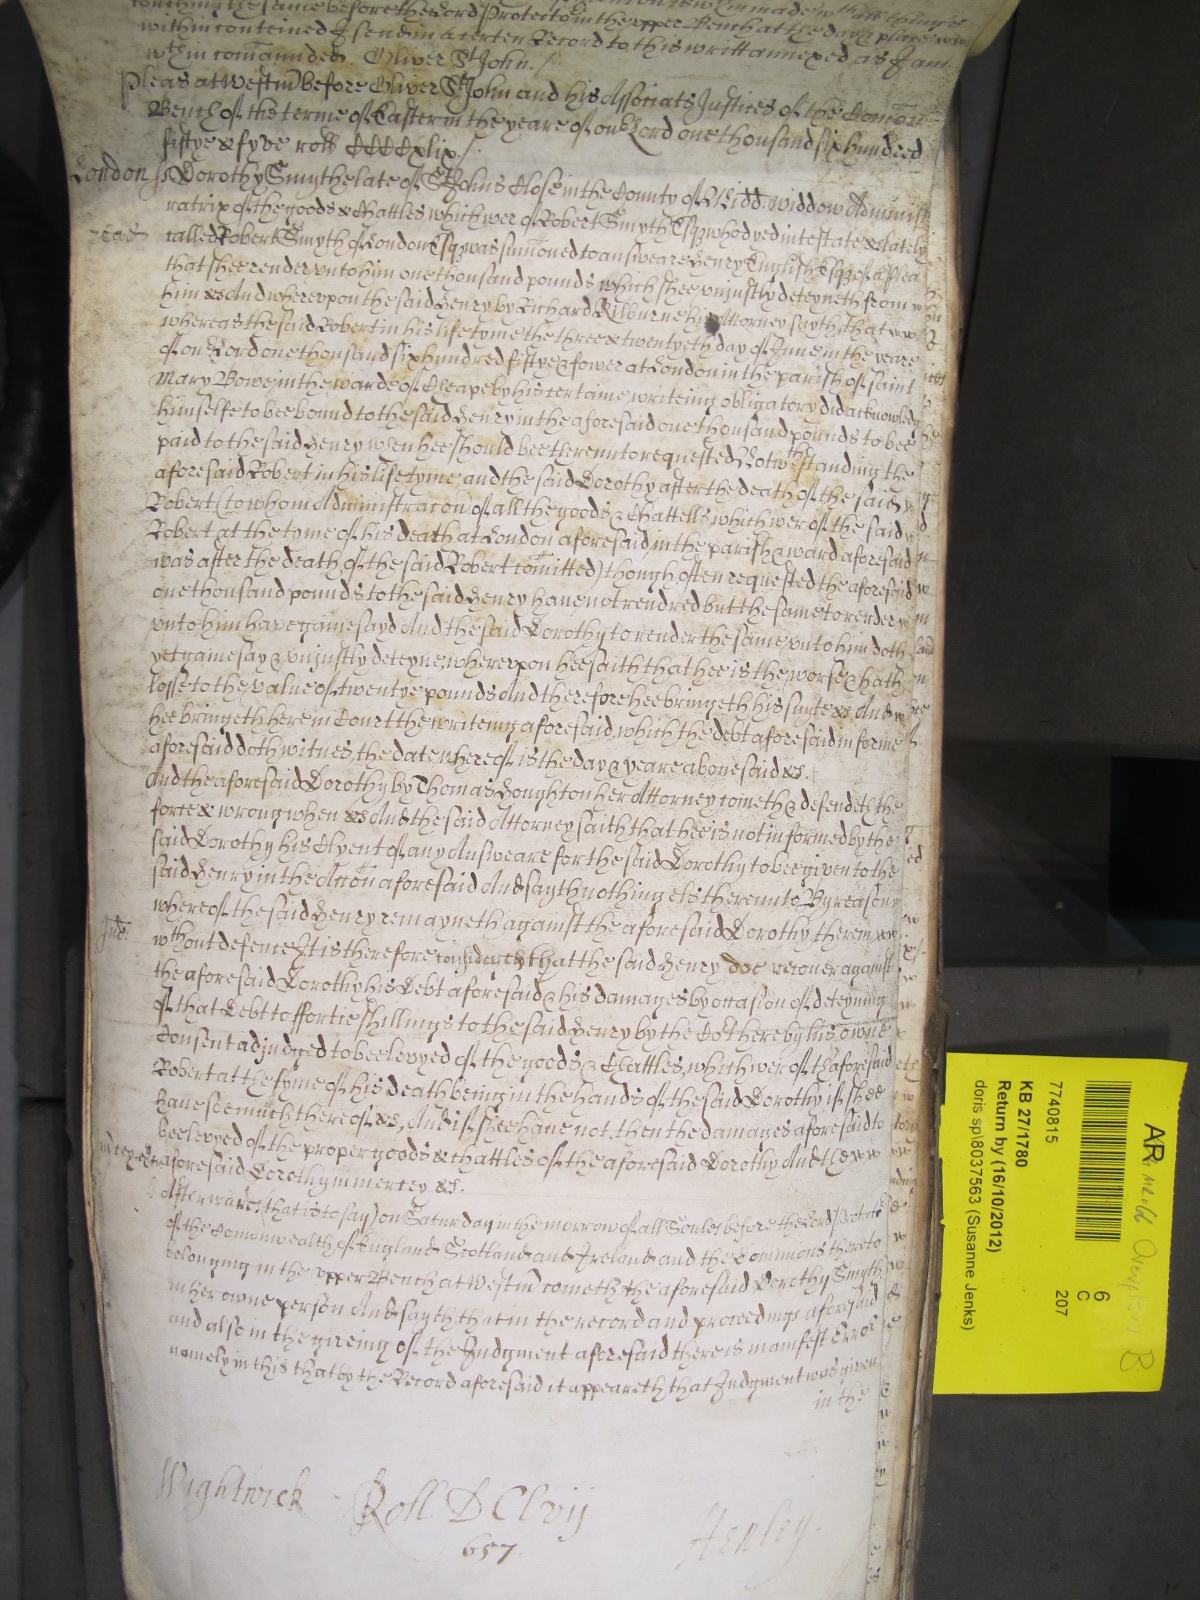 touching the same before the Lord Protector in the upper Bench at the day & place
within conteined I send in a certen Record to this writt annexed as I am
wthin comaunded. Oliver St John./
Pleas at Westm before Oliver St John and his Associats Justices of the Comon
Bench of the terme of Easter in the yeare of our Lord one thousand six hundred
fiftye & fyve roll CCCCxlix./
London ss Dorothy Smyth late of St Johns Close in the County of Midd widdow Administ
ratrix of the goods & Chattles which wer of Robert Smyth Esqr who dyed intestate & lately
called Robert Smyth of London Esqr was sumoned to answeare Henry English Esqr of a plea
that shee render unto him one thousand pounds which shee unjustly deteyneth from
him &c And whereupon the said Henry by Richard Kilburne his Attorney sayth, that
whereas the said Robert in his lifetyme the three & twentyeth day of June in the yeare
of our Lord one thousand six hundred fiftye & fower at London in the parish of saint
Mary Bowe in the warde of Cheape by his certaine writeing obligatory did acknowledg
himselfe to bee bound to the said Henry in the aforesaid one thousand pounds to bee
paid to the said Henry when hee should bee thereunto requested Notwthstanding the
aforesaid Robert in his lifetyme and the said Dorothy after the death of the said
Robert (to whom Administracon of all the goods & Chattells which wer of the said
Robert at the tyme of his death at London aforesaid, in the parish & ward aforesaid
was after the death of the said Robert comitted) though often requested the aforesaid
one thousand pounds to the said Henry have not rendred but the same to render
unto him have gainesayd And the said Dorothy to render the same unto him doth
yet gainesay & unjustly deteyne, whereupon hee saith that hee is the worse & hath
losse to the value of twentye pounds And therefore hee bringeth his suyte &c And
hee bringeth here in Court the writeing aforesaid, which the debt aforesaid in forme
aforesaid doth witnes, the date whereof is the day & yeare abovesaid &c.
And the aforesaid Dorothy by Thomas Houghton her Attorney cometh & defendeth the
force & wrong when &c And the said Attorney saith that hee is not informed by the
said Dorothy his Clyent of any Answeare for the said Dorothy to bee given to the
said Henry in the Accon aforesaid And sayth nothing els thereunto By reason
whereof the said Henry remayneth against the aforesaid Dorothy therein
Jud. wthout defence It is therefore considered that the said Henry doe recover against
the aforesaid Dorothy his Debt aforesaid & his damages by occasion of deteyning
of that Debt to ffortie shillings to the said Henry by the Co't here by his owne
Consent adjudged to bee levyed of the goods & Chattles, which wer of thaforesaid
Robert at the tyme of his death being in the hands of the said Dorothy if shee
have soe much thereof &c, And if shee have not, then the damages aforesaid to
bee levyed of the proper goods & chattles of the aforesaid Dorothy And the
aforesaid Dorothy in mercy &c.
Afterwards (that is to say) on Saturday in the morrow of all Soules before the Lord Protector
of the Comonwealth of England Scotland and Ireland and the Dominions thereto
belonging in the upper Bench at Westm cometh the aforesaid Dorothy Smyth
in her owne person And sayth that in the record and proceedings aforesaid
and alsoe in the giveing of the Judgment aforesaid there is manifest Error
namely in this that by the Record aforesaid it appeareth that Judgment was given
in the
Wightwick Roll DClvij Henley.
657.
AR
6
C
207
7740815
KB 27/1780
Return by (16/10/2012)
doris sp\8037563 (Susanne Jenks)